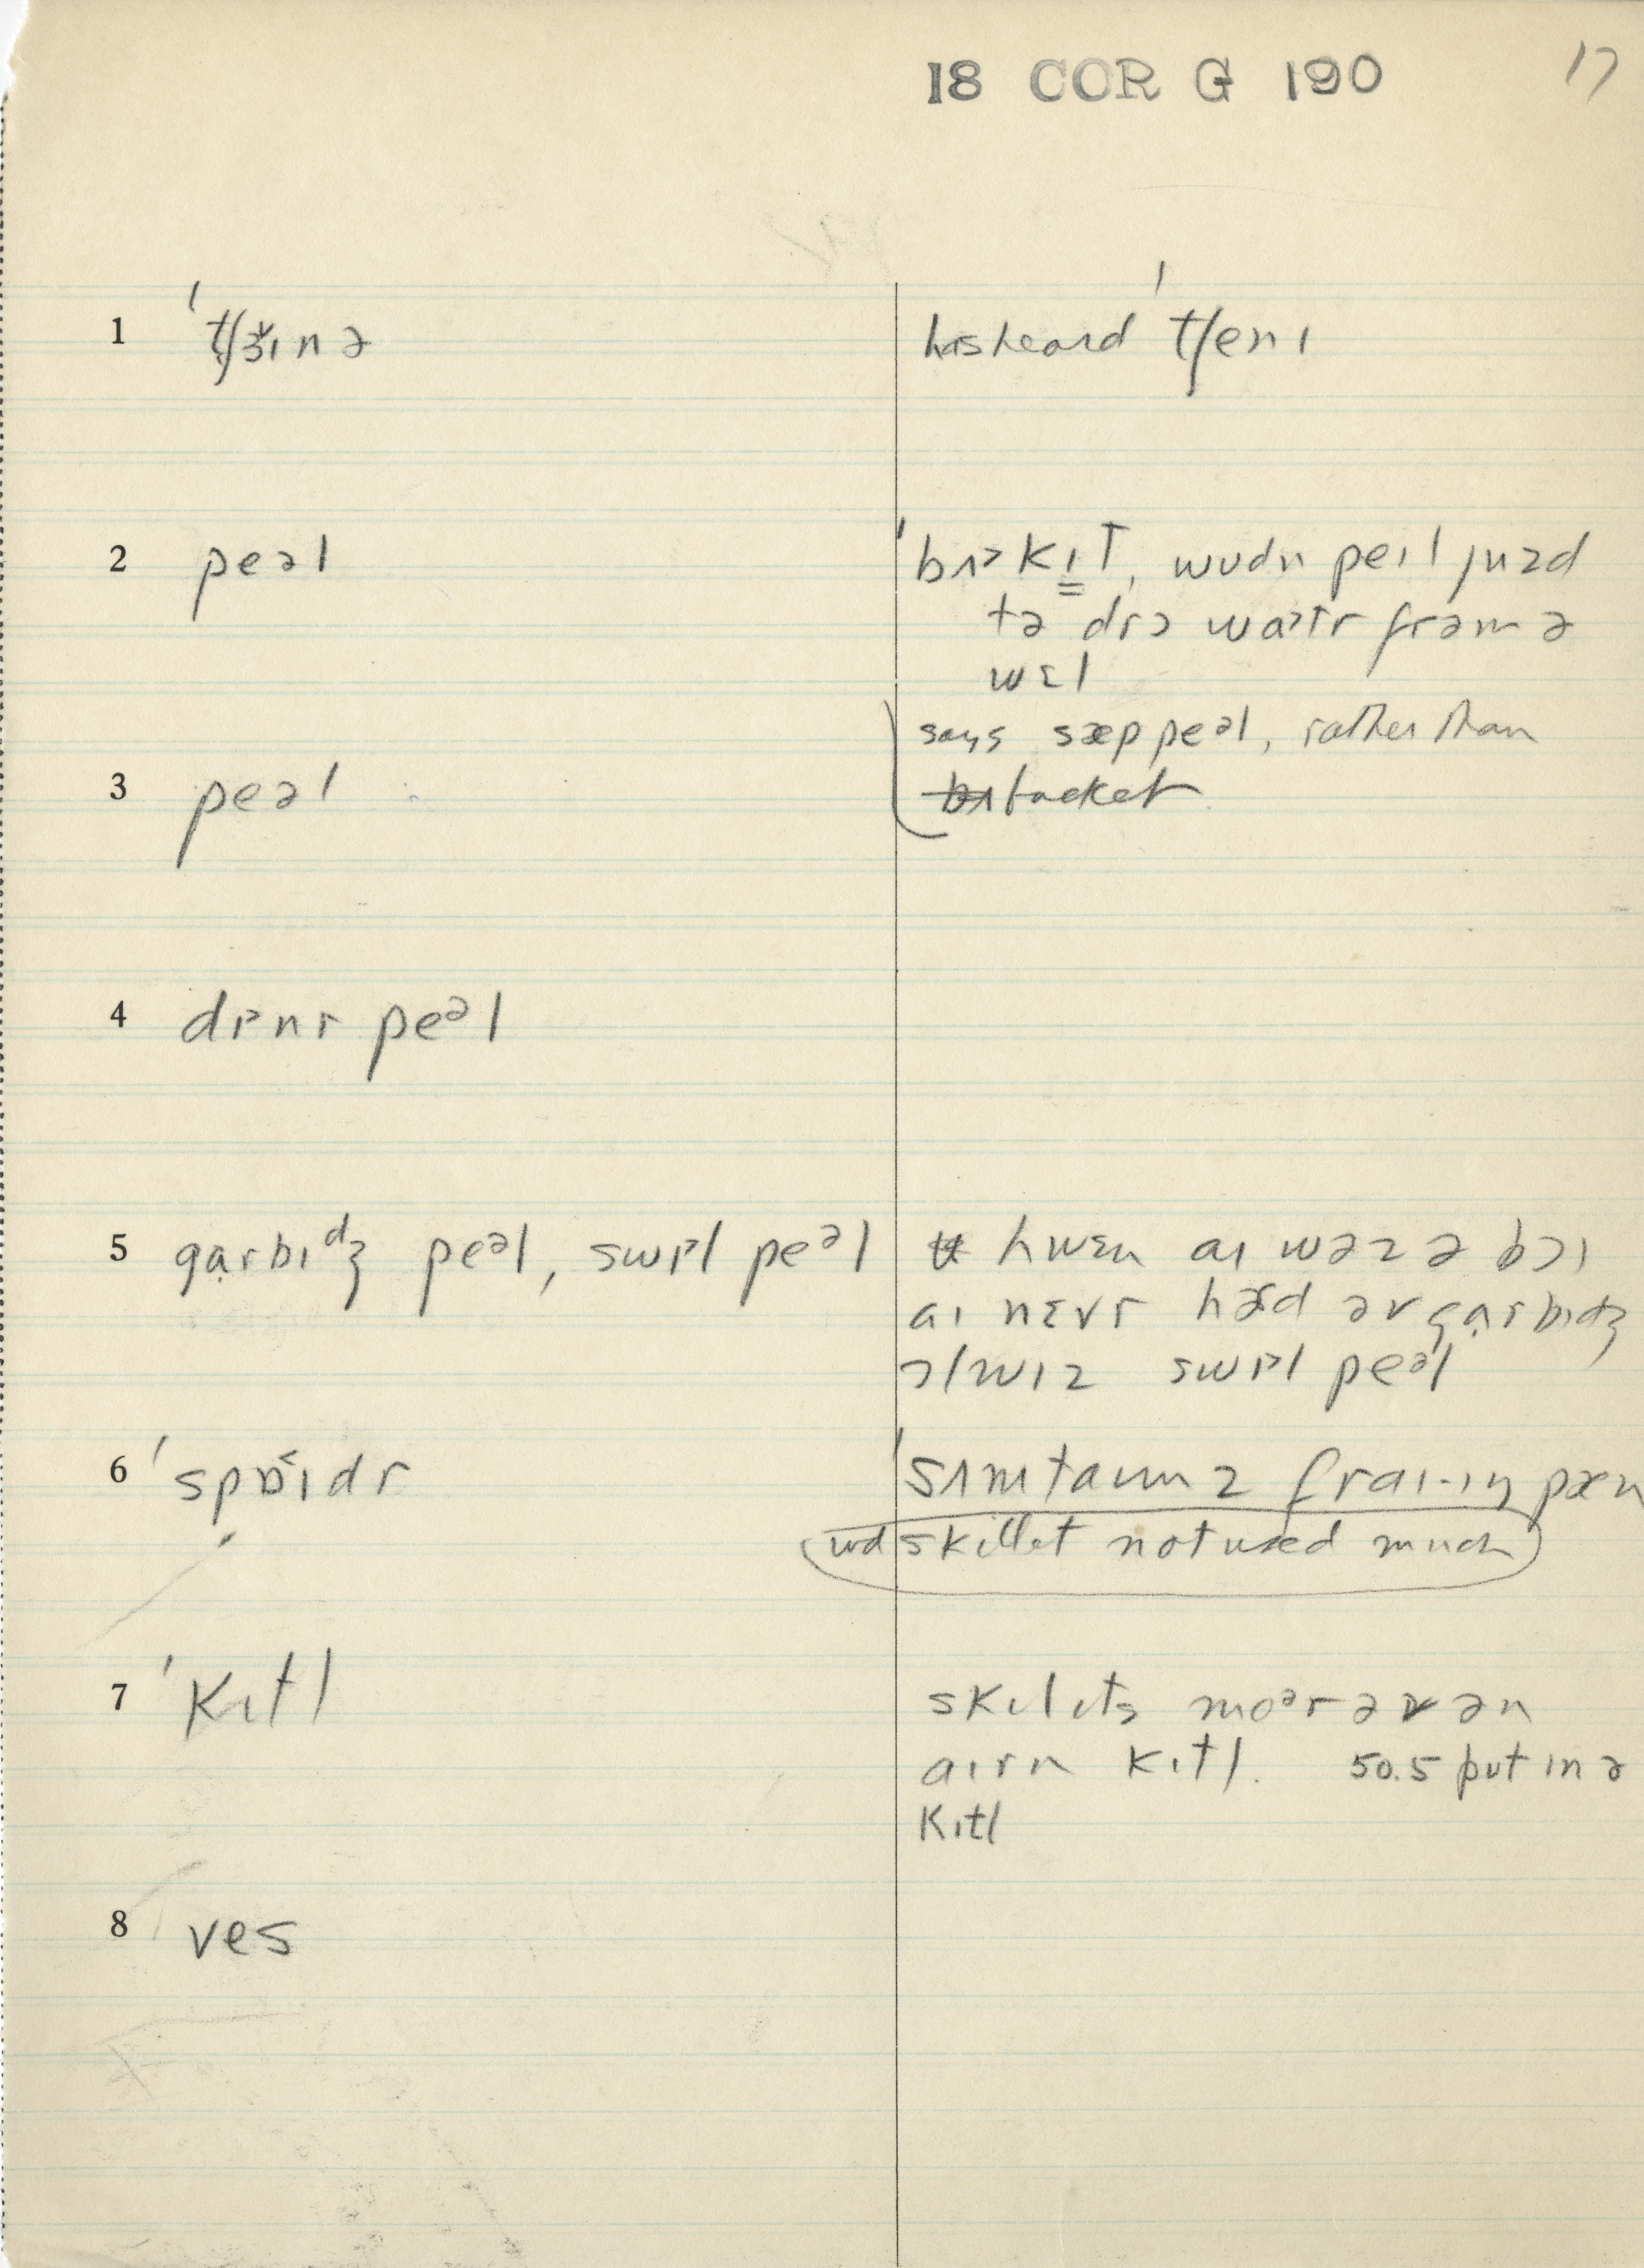 18 COR G 190 17
1 ˈtʃɜɪnə
hasheard ˈtʃenɪ
2 peəl
ˈbʌ>kɪT, wʊdn peɪl juzd
tə drɔ watr frəm ə
wɛl
says sæppeəl, rather than
bucket
3 peəl
4 dɪ>nr peəl
5 gɑrbɪdʒ peəl, swɪ>l peəl
hwɛn aɪ wəz ə bɔɪ
aɪ nɛvr hæd əv gɑrbɪdʒ
ɔlwɪz swɪ>l peəl
6 ˈspɒɪdr
ˈsʌmtaɪmz fraɪ-ɪŋ pæn
wd skillet not used much
7 ˈkɪtl
skɪlɪts moər əv ən
aɪrn kɪtl. 50.5 put in ə
kɪtl
8 ves